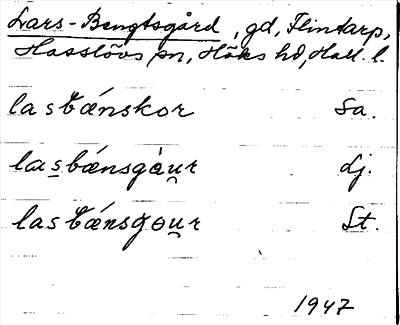 Lars-Bengtsgård, gd, Flintarp,
Hasslövs sn, Höks hd, Hall. l.
lasbǽnskor Sa.
las̲bǽnsgàu̯r Lj.
lasbǽnsgou̯r St.
1947